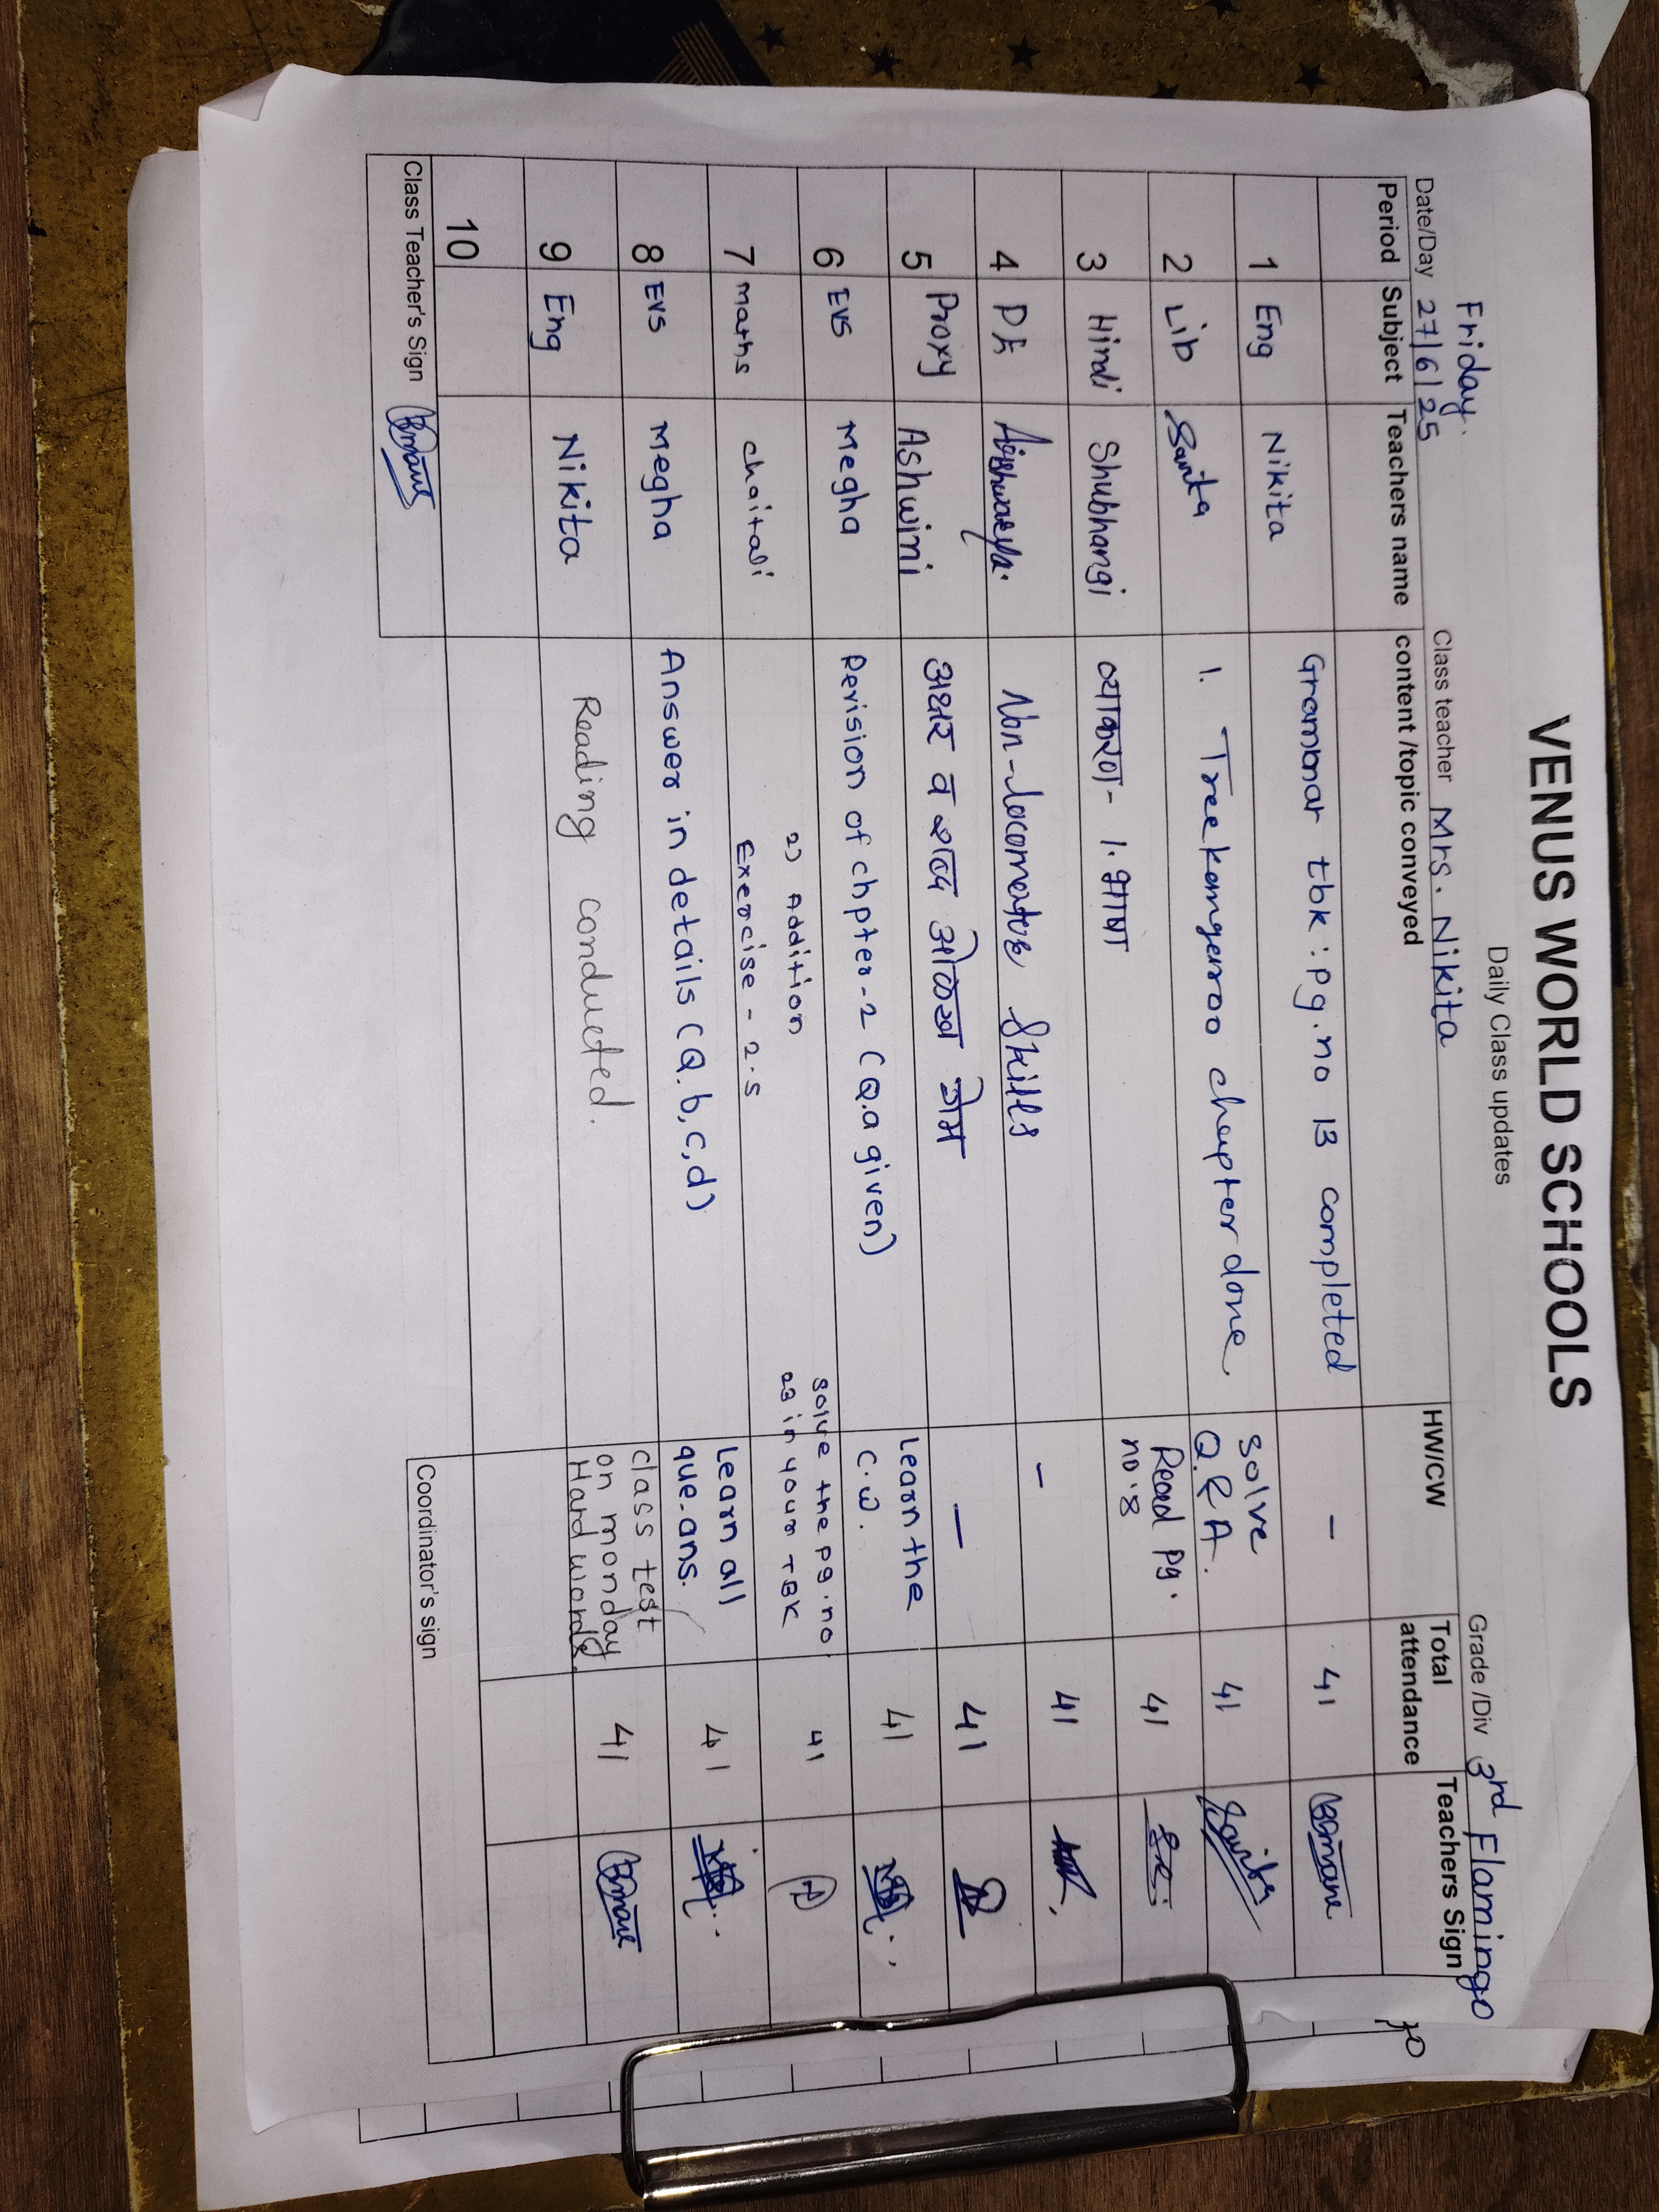 VENUS WORLD SCHOOLS
Daily Class updates
Friday.
Date/Day 27/6/25 Class teacher Mrs. Nikita Grade /Div 3rd Flamingo
Period Subject Teachers name content /topic conveyed HW/CW Total attendance Teachers Sign
1 Eng Nikita Grammar tbk : pg. no 13 completed - 41
2 Lib Sarita 1. Tree kangaroo chapter done. solve Q & A. 41 Sarita
3 Hindi Shubhangi व्याकरण - 1. भाषा Read pg. no. 8 41
4 P.E Aishwarya. Non-locomotive skills - 41
5 Proxy Ashwini अक्षर व शब्द ओळख गेम - 41
6 EVS Megha Revision of chpter - 2 (Q.a given) Learn the C.W. 41
7 maths chaitali 2) Addition Exercise - 2.5 solve the pg. no. 23 in your TBK 41
8 EVS Megha Answer in details (Q. b, c, d) Learn all que. ans. 41
9 Eng Nikita Reading conducted. class test on monday Hard words. 41
10
Class Teacher's Sign Coordinator's sign